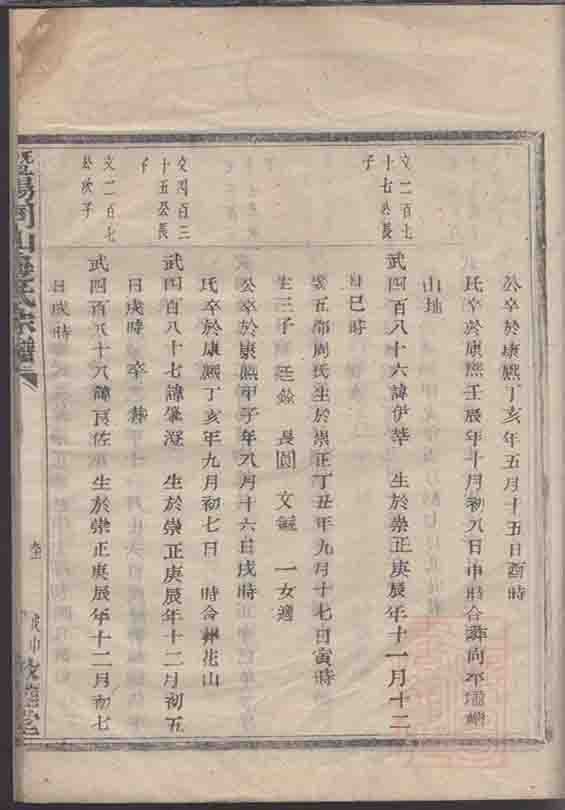 公卒於康熙丁亥年五月十五日酉時
氏卒於康熙壬辰年十月初八日申時合葬向
山地
文二百七
十七公長
子
武四百八十六諱伊莘 生於崇正庚辰年十一月十二
日巳時
周氏生於崇正丁丑年九月十七日寅時
生三子 廷銓 文 一女適
公卒於康熙甲子年八月十六日戌時
氏卒於康熙丁亥年九月初七日 時合葬花山
文四百三
十五公長
子
武四百八十七諱肇澄 生於崇正庚辰年十二月初五
日戌時 卒 葬
文二百七
公次子
武四百八十八諱良佐 生於崇正庚辰年十二月初七
日戌時
暨陽同山 氏宗譜